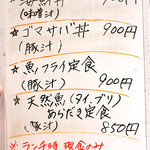 ☆海鮮丼 900円
(味噌汁)
☆ゴマサバ丼 900円
(豚汁)
☆魚フライ定食
(〃) 900円
☆天然魚(タイ、ブリ)
あらだき定食
(豚汁) 850円
※ランチ時 現金のみ